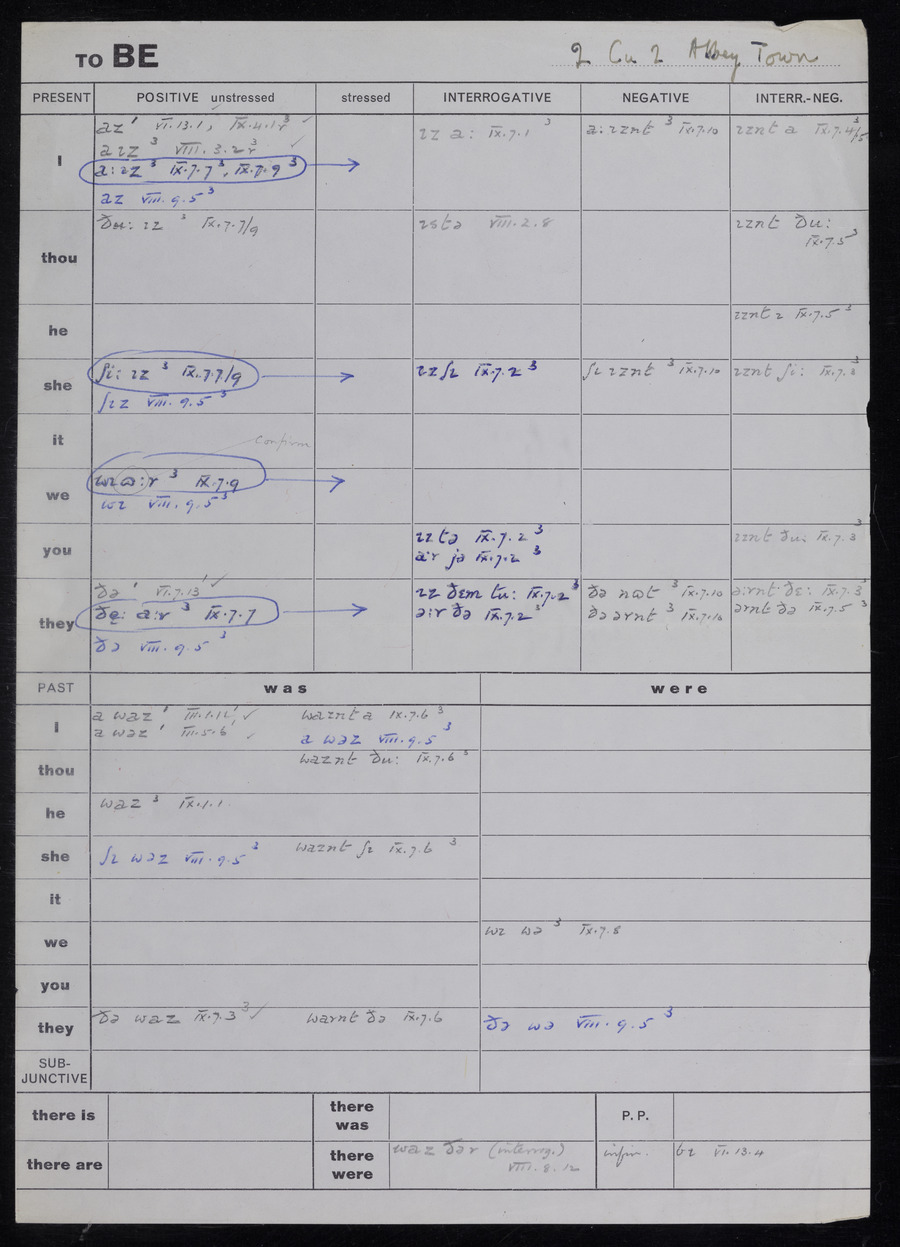 TO BE 2 Cu 2 Abbey Town
PRESENT POSITIVE unstressed stressed INTERROGATIVE NEGATIVE INTERR.-NEG.
I
az ¹ VI.13.1, IX.4.1 ³ ✓
aɪz ³ VIII.3.2 ³ ✓
a:ɪz ³ IX.7.7 ³, IX.7.9 ³ →
az VIII.9.5 ³
ɪz a: IX.7.1 ³
a:ɪznt ³ IX.7.10
ɪznt a IX.7.4/5 ³
thou
ðu: ɪz ³ IX.7.7/9
ɪstə VIII.2.8
ɪznt ðu:
IX.7.5 ³
he
ɪznt ɪ IX.7.5 ³
she
ʃi: ɪz ³ IX.7.7/9 →
ʃɪz VIII.9.5 ³
ɪz ʃɪ IX.7.2 ³
ʃɪ ɪznt ³ IX.7.10
ɪznt ʃi: IX.7.3 ³
it
confirm
we
wɪ ɑ:r ³ IX.7.9 →
wɪ VIII.9.5 ³
you
ɪz tə IX.7.2 ³
a:r jə IX.7.2 ³
ɪznt ðu: IX.7.3 ³
they
ðə ¹ VI.7.13 ¹ ✓
ðe: a:r ³ IX.7.7 →
ðə VIII.9.5 ³
ɪz ðem tu: IX.7.2 ³
a:r ðə IX.7.2 ³
ðə nɒt ³ IX.7.10
ðə arnt ³ IX.7.10
a:rnt ðɛ: IX.7.3 ³
arnt ðə IX.7.5 ³
PAST was were
I
a waz ¹ III.1.12 ¹ ✓ waznt a IX.7.6 ³
a wəz ¹ III.5.6 ¹ ✓ a wəz VIII.9.5 ³
thou
waznt ðu: IX.7.6 ³
he
waz ³ IX.1.1
she
ʃɪ wəz VIII.9.5 ³ waznt ʃɪ IX.7.6 ³
it
we
wɪ wə ³ IX.7.8
you
they
ðə waz IX.7.3 ³ ✓ warnt ðə IX.7.6
ðə wə VIII.9.5 ³
SUB-
JUNCTIVE
there is
there
was
P.P.
there are
there
were
waz ðər (interrog.)
VIII.8.12
infin. bɪ VI.13.4